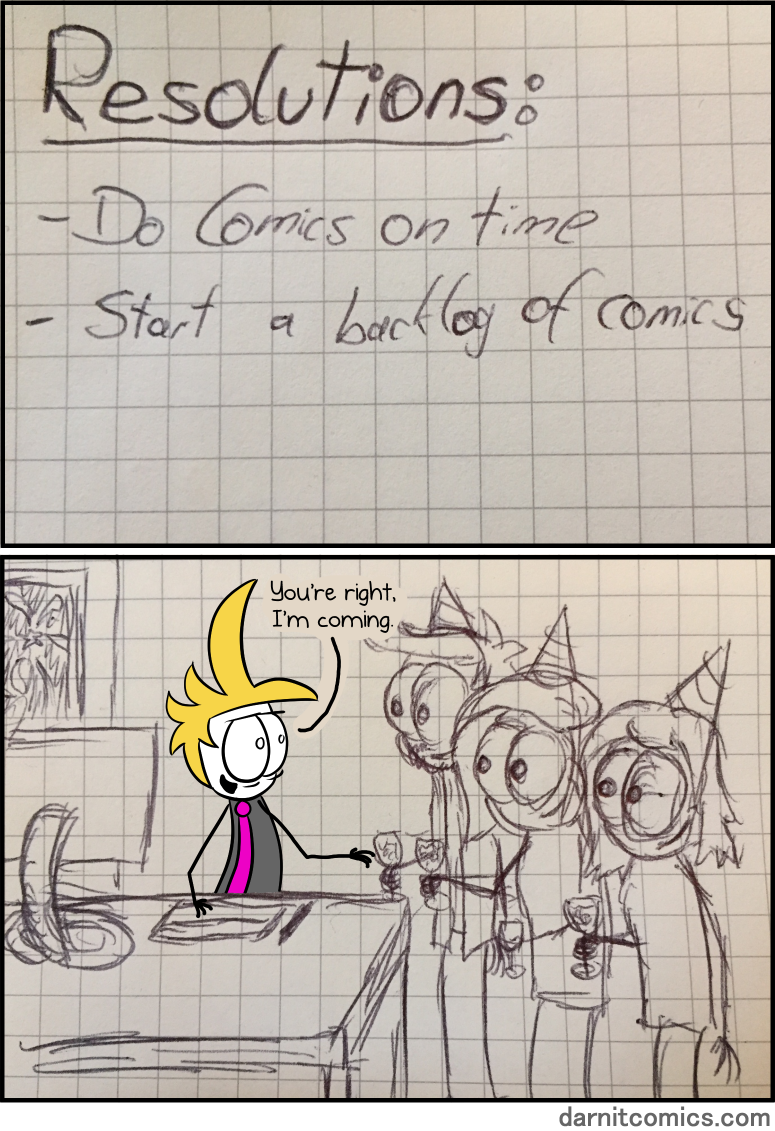 Resolutions:
- Do Comics on time
- Start a backlog of comics
You're right,
I'm coming.
darnitcomics.com